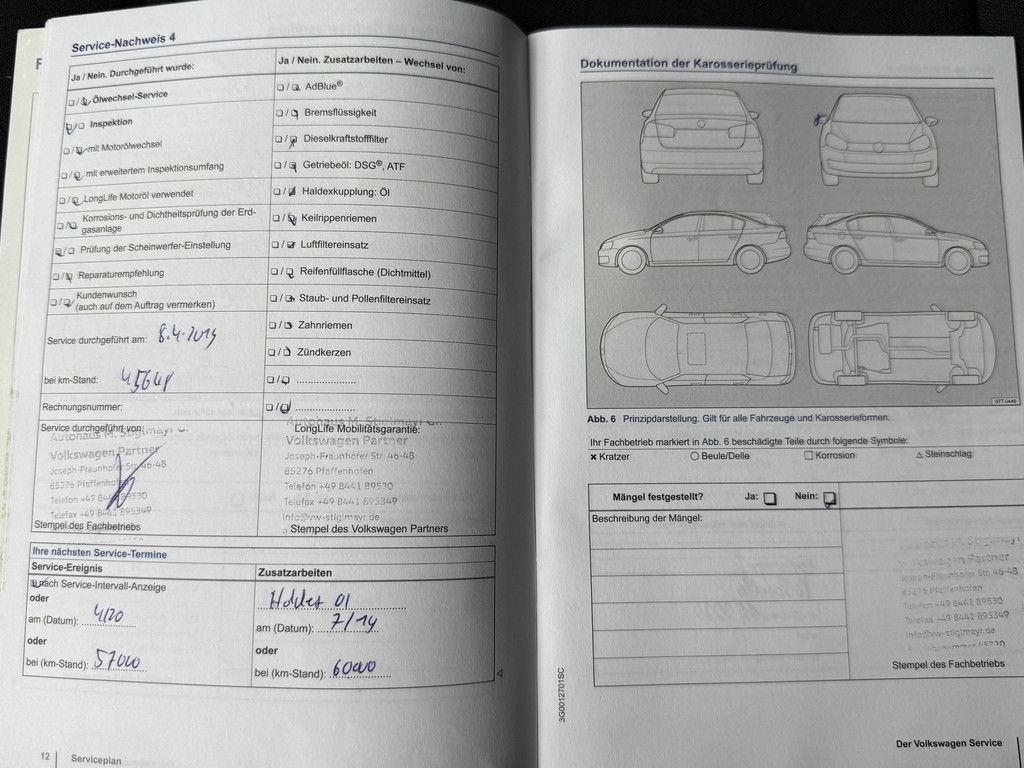 Service-Nachweis 4
Ja / Nein. Durchgeführt wurde:
Ja / Nein. Zusatzarbeiten – Wechsel von:
Ölwechsel-Service
AdBlue®
Inspektion
Bremsflüssigkeit
mit Motorölwechsel
Dieselkraftstofffilter
mit erweitertem Inspektionsumfang
Getriebeöl: DSG®, ATF
LongLife Motoröl verwendet
Haldexkupplung: Öl
Korrosions- und Dichtheitsprüfung der Erd-
gasanlage
Keilrippenriemen
Prüfung der Scheinwerfer-Einstellung
Luftfiltereinsatz
Reparaturempfehlung
Reifenfüllflasche (Dichtmittel)
Kundenwunsch
(auch auf dem Auftrag vermerken)
Staub- und Pollenfiltereinsatz
Zahnriemen
Zündkerzen
Service durchgeführt am: 8.4.2019
bei km-Stand:
Rechnungsnummer:
Service durchgeführt von:
Autohaus M. Stiglmayr
Volkswagen Partner
Joseph-Fraunhofer Str. 46-48
85276 Pfaffenhofen
Telefon +49 8441 89530
Telefax +49 8441 895349
Stempel des Fachbetriebs
LongLife Mobilitätsgarantie:
Autohaus M. Stiglmayr
Volkswagen Partner
Joseph-Fraunhofer Str. 46-48
85276 Pfaffenhofen
Telefon +49 8441 89530
Telefax +49 8441 895349
info@vw-stiglmayr.de
Stempel des Volkswagen Partners
Ihre nächsten Service-Termine
Service-Ereignis
Zusatzarbeiten
nach Service-Intervall-Anzeige
oder
am (Datum): 4/20
oder
bei (km-Stand): 57000
Haldex Öl
am (Datum): 7/19
oder
bei (km-Stand): 60000
12 | Serviceplan
Dokumentation der Karosserieprüfung
B7T-0449
Abb. 6 Prinzipdarstellung. Gilt für alle Fahrzeuge und Karosserieformen.
Ihr Fachbetrieb markiert in Abb. 6 beschädigte Teile durch folgende Symbole:
× Kratzer ○ Beule/Delle □ Korrosion △ Steinschlag
Mängel festgestellt? Ja: Nein:
Beschreibung der Mängel:
M. Stiglmayr
Volkswagen Partner
Joseph-Fraunhofer Str. 46-48
85276 Pfaffenhofen
Telefon +49 8441 89530
Telefax +49 8441 895349
info@vw-stiglmayr.de
Stempel des Fachbetriebs
3G0012701SC
Der Volkswagen Service